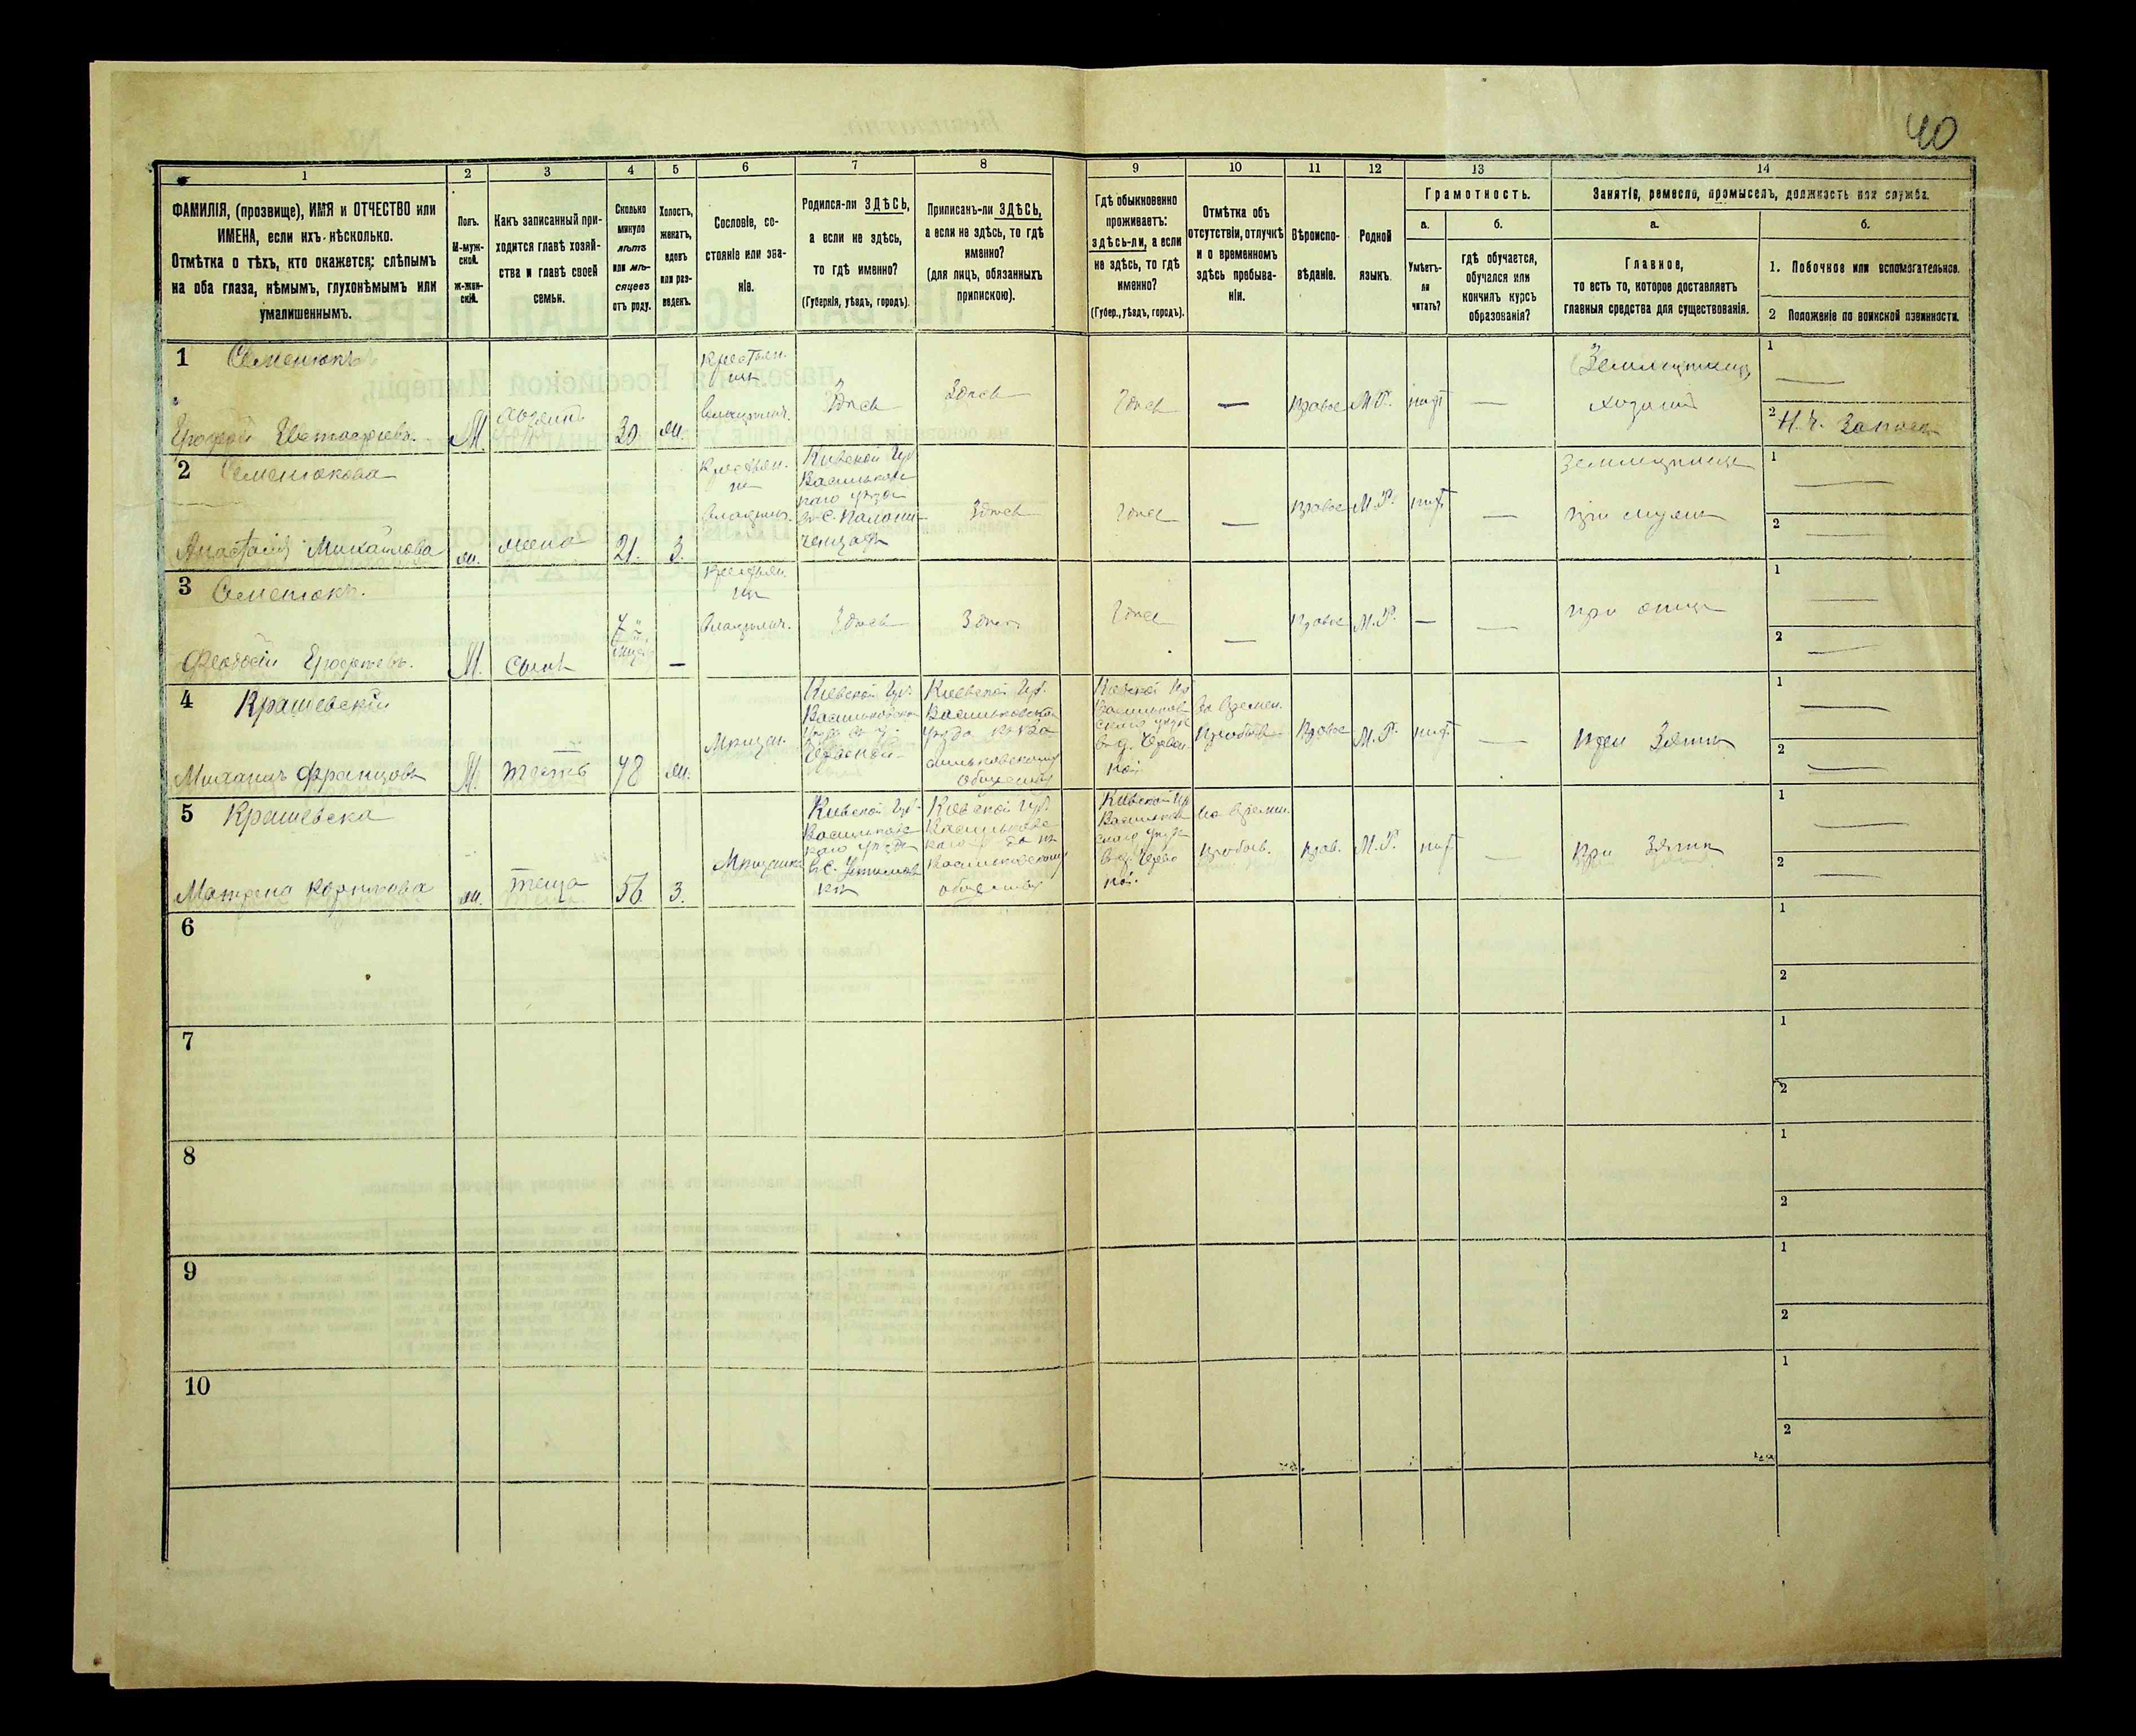 40
1 2 3 4 5 6 7 8 9 10 11 12 13 14
ФАМИЛІЯ, (прозвище), ИМЯ и ОТЧЕСТВО или
ИМЕНА, если ихъ нѣсколько.
Отмѣтка о тѣхъ, кто окажется: слѣпымъ
на оба глаза, нѣмымъ, глухонѣмымъ или
умалишеннымъ.
Полъ.
М-муж-
ской.
Ж-жен-
скій.
Какъ записанный при-
ходится главѣ хозяй-
ства и главѣ своей
семьи.
Сколько
минуло
лѣтъ
или мѣ-
сяцевъ
отъ роду.
Холостъ,
женатъ,
вдовъ
или раз-
веденъ.
Сословіе, со-
стояніе или зва-
ніе.
Родился-ли ЗДѢСЬ,
а если не здѣсь,
то гдѣ именно?
(Губернія, уѣздъ, городъ).
Приписанъ-ли ЗДѢСЬ,
а если не здѣсь, то гдѣ
именно?
(для лицъ, обязанныхъ
припискою).
Гдѣ обыкновенно
проживаетъ:
здѣсь-ли, а если
не здѣсь, то гдѣ
именно?
(Губер., уѣздъ, городъ).
Отмѣтка объ
отсутствіи, отлучкѣ
и о временномъ
здѣсь пребыва-
ніи.
Вѣроиспо-
вѣданіе.
Родной
языкъ.
Грамотность.
а.
Умѣетъ-
ли
читать?
б.
гдѣ обучается,
обучался или
кончилъ курсъ
образованія?
Занятіе, ремесло, промыселъ, должность или служба.
а.
Главное,
то есть то, которое доставляетъ
главныя средства для существованія.
б.
1. Побочное или вспомогательное.
2 Положеніе по воинской повинности.
1 Семенюкъ
Ерофей Евстафіевъ.
М
хозяинъ
30
ж.
Крестьян.
инъ
Владѣльч.
Здѣсь
Здѣсь
Здѣсь
—
Правос
М.Р.
нѣт
—
Земледѣлецъ
хозяинъ
1 —
2 Н. ч. Запаса
2 Семенюкова
Анастасія Михайлова
ж.
жена
21.
З.
Крестьян.
ка
Владѣльч.
Кіевской Губ
Васильковс
каго уѣзда
въ с.
Здѣсь
Здѣсь
—
Правос
М.Р.
нѣт
—
Земледѣлица
при мужѣ
1 —
2 —
3 Семенюкъ.
Феодосій Ерофеевъ.
М.
сынъ
7
мѣсяц
—
Крестьян.
инъ
Владѣльч.
Здѣсь
Здѣсь
Здѣсь
—
Правос
М.Р.
—
—
при отцѣ
1 —
2 —
4 Крашевскій
Михаилъ Францовъ
М.
тесть
48
ж.
Мѣщан.
Кіевской Губ.
Васильковска
уѣзда въ д.
Червоной
Кіевской Губ.
Васильковскаго
уѣзда къ Ва
сильковскому
обществу
Кіевской Губ
Васильков
скаго уѣзда
въ д. Черво
ной
Во времен.
Пребыв
Правос
М.Р.
нѣт
—
При Зятѣ
1 —
2 —
5 Крашевска
Матрена
ж.
теща
56.
З.
Мѣщанка
Кіевской Губ.
Васильковс
каго уѣзда
въ С. Устимов
кѣ
Кіевской Губ.
Васильковс
каго у да къ
Васильковскому
обществу
Кіевской Губ
Васильков
скаго уѣзда
въ д. Черво
ной.
Во времен.
Пребыв.
Прав.
М.Р.
нѣт
—
При Зятѣ
1 —
2 —
6
1
2
7
1
2
8
1
2
9
1
2
10
1
2